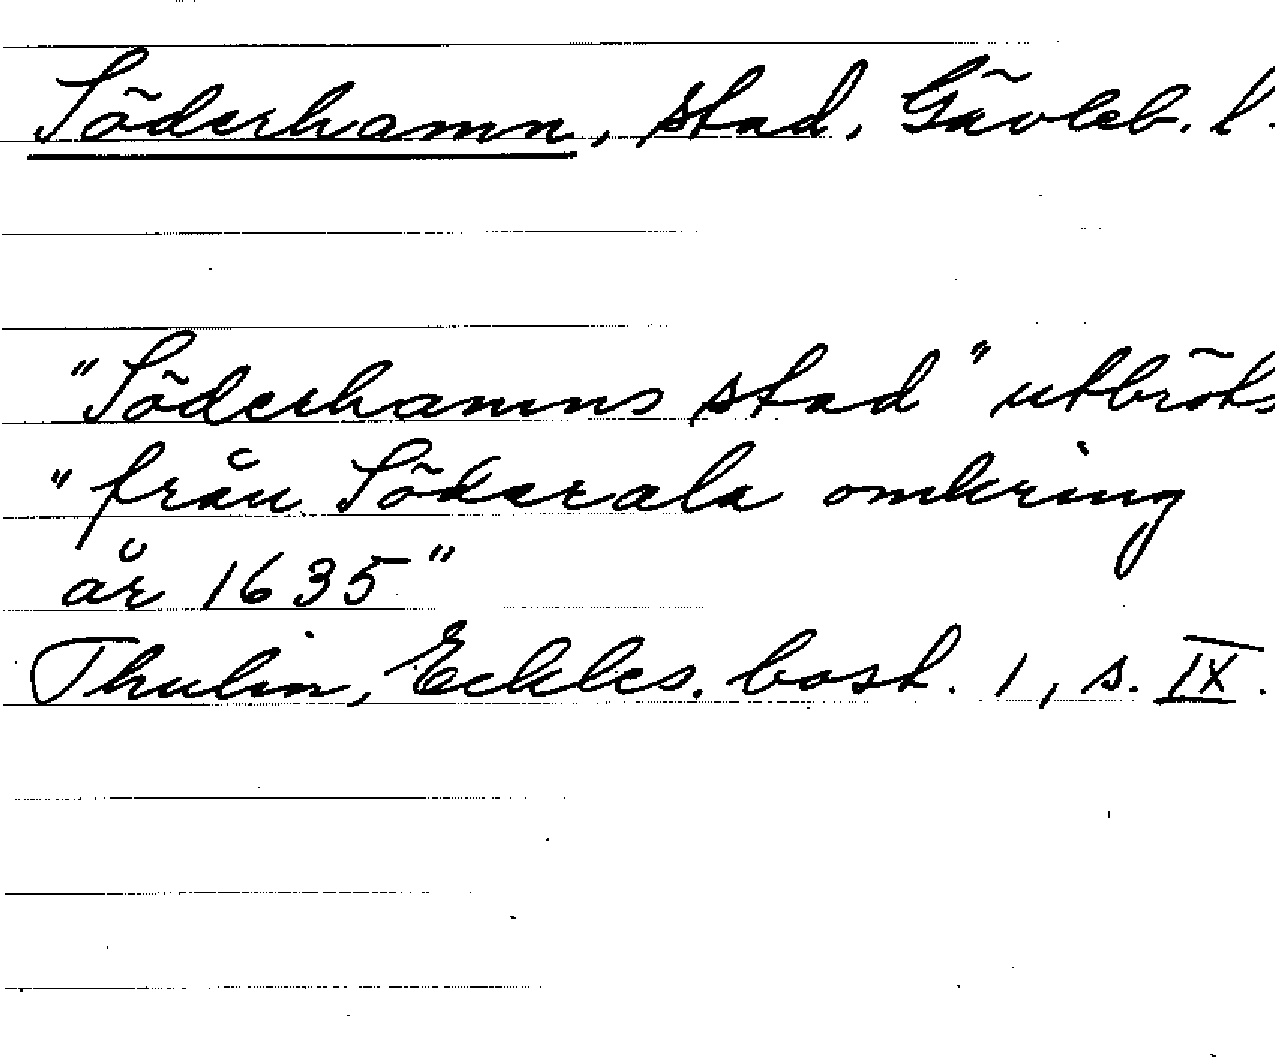 Söderhamn, stad, Gävleb. l.
"Söderhamns stad" utbröts
"från Söderala omkring
år 1635"
Thulin, Eckles. bost. 1, s. IX.